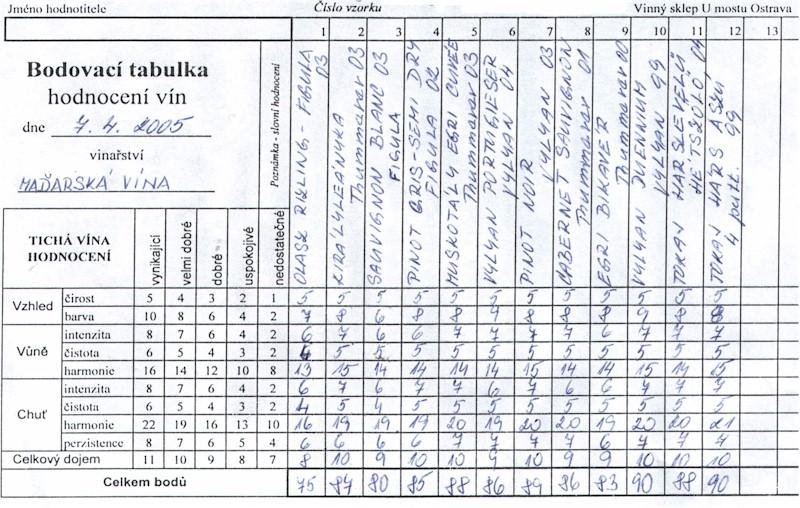 Jméno hodnotitele Číslo vzorku Vinný sklep U mostu Ostrava
1 2 3 4 5 6 7 8 9 10 11 12 13
Bodovací tabulka
hodnocení vín
dne 7.4.2005
vinařství
MAĎARSKÁ VÍNA
Poznámka - slovní hodnocení
OLASK RIZLING - FIGULA 03
KIRÁLYLEÁNYKA Thummerer 03
SAUVIGNON BLANC 03 FIGULA
PINOT GRIS - SEMI DRY FIGULA 02
MUSKOTÁLY EGRI CUVÉE Thummerer 03
VYLYAN PORTUGIESER VYLYAN 04
PINOT NOIR VYLYAN 03
CABERNET SAUVIGNON Thummerer 01
EGRI BIKAVÉR Thummerer 00
VYLYAN DUENNIUM VYLYAN 99
TOKAJ HARSLEVELŰ HÉTSZŐLŐ 04
TOKAJ HÁRS ASZÚ 4 putt. 99
TICHÁ VÍNA HODNOCENÍ vynikající velmi dobré dobré uspokojivé nedostatečné
Vzhled čirost 5 4 3 2 1 5 5 5 5 5 5 5 5 5 5 5 5
barva 10 8 6 4 2 7 8 6 8 8 9 8 8 8 9 8 8
Vůně intenzita 8 7 6 4 2 6 7 6 6 7 7 7 7 6 7 7 7
čistota 6 5 4 3 2 4 5 5 5 5 5 5 5 5 5 5 5
harmonie 16 14 12 10 8 13 15 14 14 14 14 15 14 14 15 14 15
Chuť intenzita 8 7 6 4 2 6 7 6 7 7 6 7 6 6 7 7 7
čistota 6 5 4 3 2 4 5 4 5 5 5 5 5 5 5 5 5
harmonie 22 19 16 13 10 16 19 19 19 20 19 20 20 19 20 20 21
perzistence 8 7 6 5 4 6 6 6 6 7 7 7 7 6 7 7 7
Celkový dojem 11 10 9 8 7 8 10 9 10 10 9 10 9 9 10 10 10
Celkem bodů 75 87 80 85 88 86 89 86 83 90 88 90